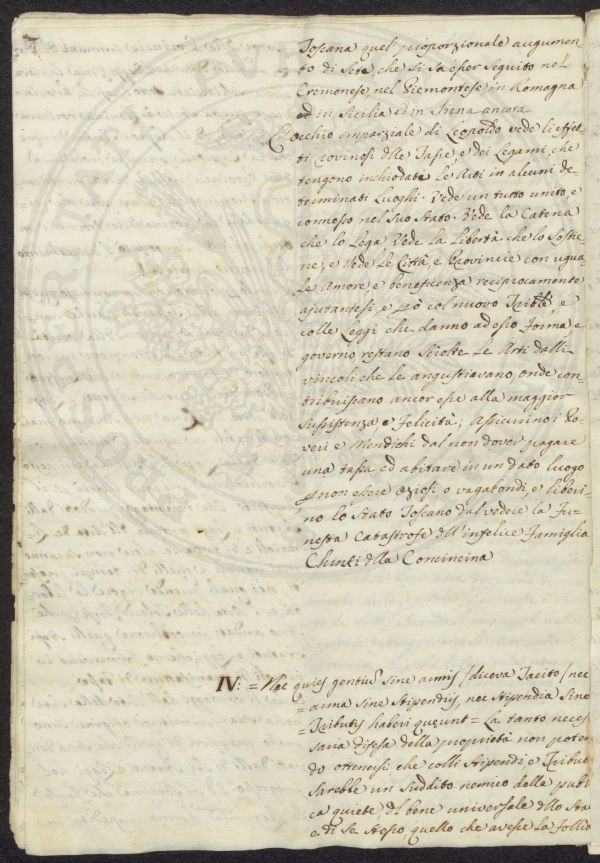 Toscana quel proporzionale augumen-
to di Seta, che si sà esser seguito nel
Cremonese nel Piemontese in Romagna
ed in Sicilia ed in Siena ancora
L'occhio imparziale di Leopoldo vede li effet-
ti rovinosi dlle Tasse, e dei Legami, che
tengono inchiodate le Arti in alcuni de-
terminati Luoghi. Vede un tutto unito, e
connesso nel suo Stato. Vede la Catena
che lo lega. Vede la Libertà che lo sostie
ne, e vede le Città, e Provincie con ugua
le Amore, e beneficenza reciprocamente
ajutantesi, e però col nuovo e
colle Leggi che danno ad esso forma, e
governo, restano sciolte le Arti dalli
vincoli che le angustiavano, onde con-
tribuiscano ancor esse alla maggior
sussistenza e Felicità; Assicurino i Po-
veri e Mendichi dal non dover pagare
una tassa ed abitare in un dato luogo
p non essere oziosi o vagabondi, e liberi-
no lo Stato Toscano dal vedere la Fu-
nesta Catastrofe dll'infelice Famiglia
Chinti dlla Concincina
IV: = Nec quies gentiũ sine armis / diceva Tacito / nec
= arma sine Stipendijs, nec Stipendia sine
= Tributis haberi queunt = La tanto neces
saria difesa della proprietà non poten
do ottenersi che colli Stipendi, e Tribu
Sarebbe un suddito nemico della pubb
ca quiete, dl bene universale dllo Sta
e di se stesso, quello che avesse la follia